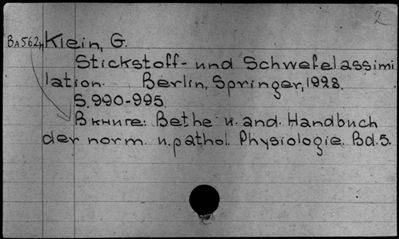 2
Ba562ч Klein, G.
Stickstoff- und Schwefelassimi
lation. Berlin, Springer, 1928.
S. 990-995.
В книге: Bethe u. and. Handbuch
der norm. u. pathol. Physiologie. Bd. 5.